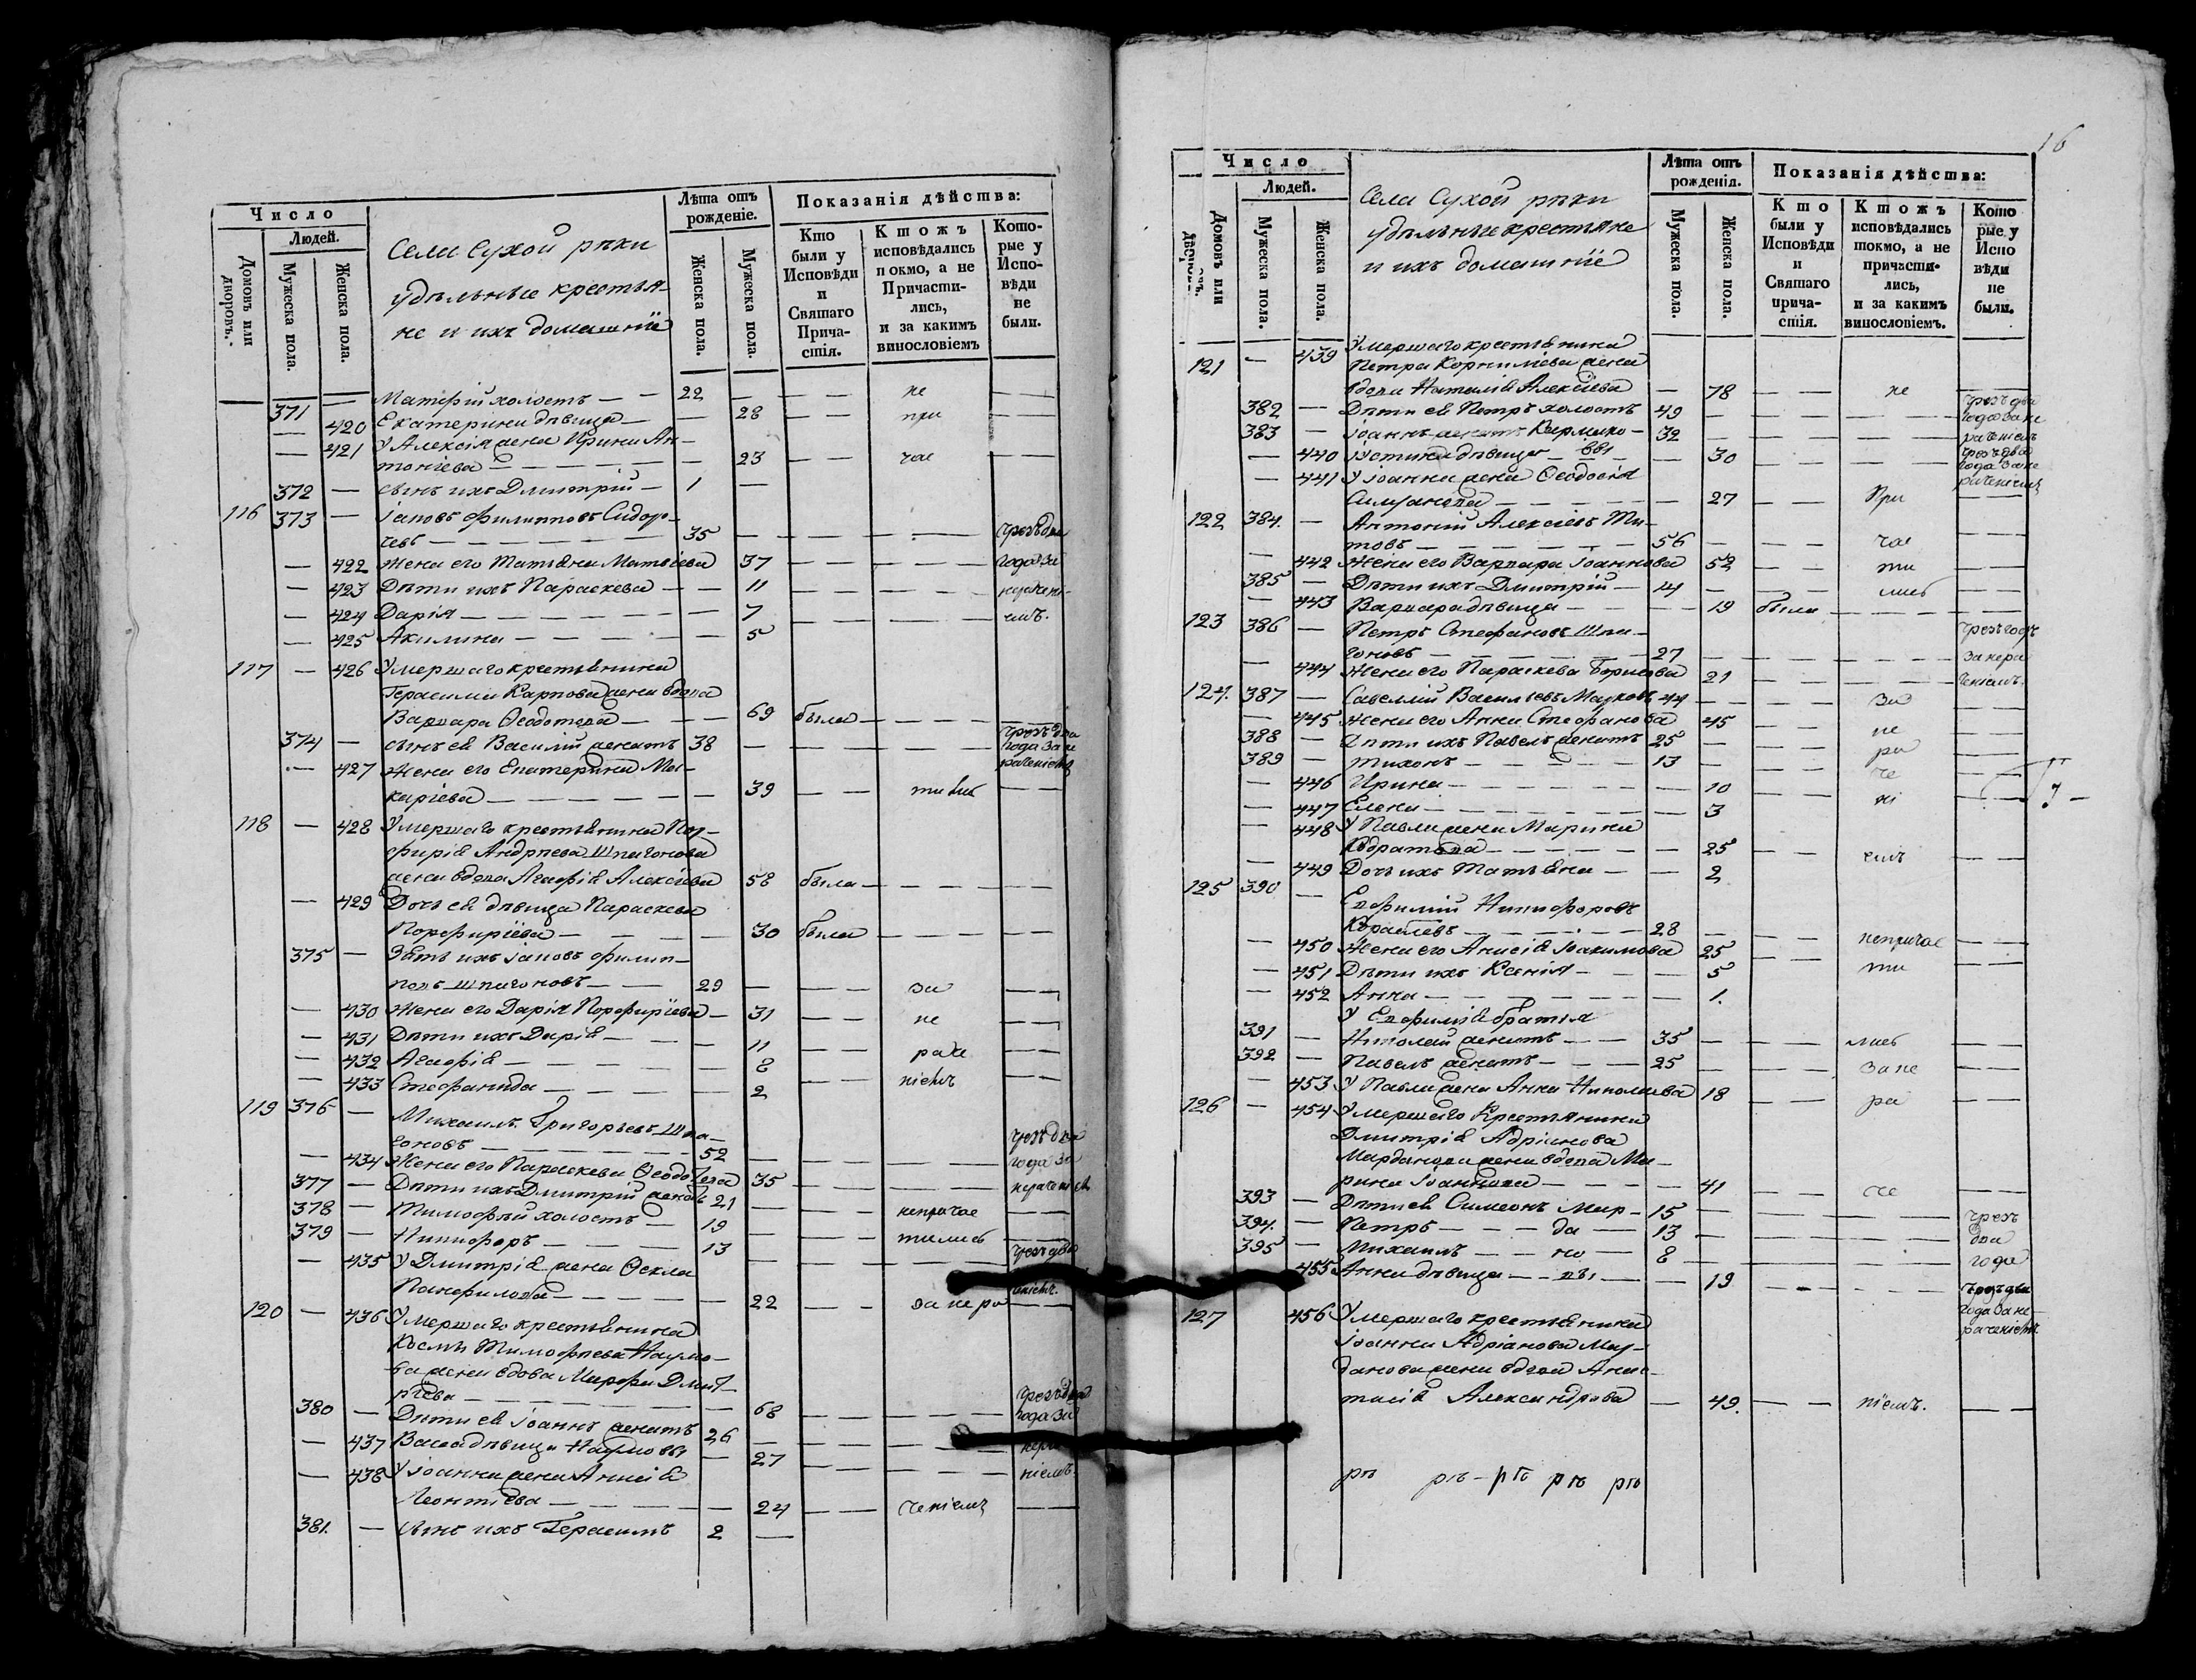 Число
Людей.
Домовъ или дворовъ.
Мужеска пола.
Женска пола.
Села Сухой рѣки
удѣльные крестья-
не и ихъ домашнїе
Лѣта отъ рожденіе.
Женска пола.
Мужеска пола.
Показанія дѣйства:
Кто были у Исповѣди и Святаго Прича-стія.
Ктожъ исповѣдались покмо, а не Причасти-лись, и за какимъ винословіемъ
Кото-рые у Испо-вѣди не были.
371 — холостъ — 22 — не
420 Екатерина дѣвица — 28 — при
421 У Алексія жена Ирина Ан-
тонїева — 23 — час
372 — сынъ ихъ Димитрій — 1 —
116 373 — Іаковъ Филипповъ Сидор-
35 — чрезъ два
— 422 Жена его Татьяна Матвѣева 37 — года за
— 423 Дѣти ихъ Параскева — 11
— 424 Дарія — 7
— 425 Акилина — 5
117 — 426 Умершаго крестьянина
Герасима Карпова жена вдова
Варвара Ѳеодотова — 69 была —
чрезъ два
374 — сынъ ея Василій женатъ 38 — года за не
— 427 Жена его Екатерина Ма-
карїева — 39 — тились
118 — 428 Умершаго крестьянина Пор-
фирія Андреева Шпагонова
жена вдова Агафія Алексїева 58 была —
— 429 Дочь ея дѣвица Параскева
Порфирїева — 30 была —
375 — Зять ихъ Іаковъ Филип-
повъ Шпагоновъ — 29 — за
— 430 Жена его Дарія Порфирїева — 31 — не
— 431 Дѣти ихъ Дарія — 11 — раче
— 432 Агафія — 8
— 433 Стефанида — 2 — ніемъ
119 376 — Михаилъ Григорьевъ Шпа-
гоновъ — 52 — чрезъ два
— 434 Жена его Параскева Ѳеодотова 35 — года за
377 — Дѣти ихъ Димитрій женатъ 21 — нераченіемъ
378 — Тимофѣй холостъ — 19 — непричас
379 — Никифоръ — 13 — тились
— 435 У Димитрія жена Ѳекла чрезъ два
Панфилова — 22 — за нера
120 — 436 Умершаго крестьянина
Космы Тимофеева Наумо-
ва жена вдова Марфа Дмит-
рїева — 68 —
380 — Дѣти ея Іоаннъ женатъ 26 — года за
— 437 Васса дѣвица Наумовы — 27 —
— 438 У Іоанна жена Анисія
Леонтїева — 24 — ченіемъ
381. — сынъ ихъ Герасимъ 2 —
16
Число
Людей.
Домовъ или дворовъ.
Мужеска пола.
Женска пола.
Села Сухой рѣки
удѣльные крестьяне
и ихъ домашнїе
Лѣта отъ рожденія.
Мужеска пола.
Женска пола.
Показанія дѣйства:
Кто были у Исповѣди и Святаго прича-стія.
Ктожъ исповѣдались токмо, а не причасти-лись, и за какимъ винословіемъ.
Кото рые у Испо вѣди не были.
121 — 439 Умершаго крестьянина
Петра Корнилїева жена
вдова Наталія Алексїева — 78 — не
382 — Дѣти ея Петръ холостъ 49 — чрезъ два года за не
383 — Іоаннъ женатъ Кырмако- 32 — раченіемъ
— 440 Іустина дѣвица — вы — 30 — чрезъ два года за не
— 441 У Іоанна жена Ѳеодосія раченіемъ
— 27 — При
122 384. — Антоній Алексїевъ Ти-
товъ — 56 — час
— 442 Жена его Варвара Іоаннова 52 — ти
385 — Дѣти ихъ Димитрій — 14 — лись
— 443 Варвара дѣвица — 19 была —
123 386 — Петръ Стефановъ Шпа-
гоновъ — 27 — чрезъ годъ
— 444 Жена его Параскева Борисова 21 — за нера ченіемъ.
124. 387 — Савелій Васильевъ 44 — за
— 445 Жена его Анна Стефанова 45 — не
388 — Дѣти ихъ Павелъ женатъ 25 — ра
389 — Тихонъ — 13 — че
— 446 Ирина — 10 — ні
— 447 Елена — 3
— 448 У Павла жена Марина
Кодратова — 25 — емъ
— 449 Дочь ихъ Татьяна — 2
125 390 — Евфимій Никифоровъ
28 —
— 450 Жена его Анисія Іоакимова 25 — непричас
— 451 Дѣти ихъ Ксенія — 5 — ти
— 452 Анна — 1.
У Евфимія братья
391 — Николай женатъ — 35 — лись
392 — Павелъ женатъ — 25 — за не
— 453 У Павла жена Анна Николаева 18 — ра
126 — 454 Умершаго Крестьянина
Димитрія Адріанова
Марданова жена вдова Ма-
рина Іоаннова — 41 — че
393 — Дѣти ея Симеонъ Мар- 15 — чрезъ
394. — Петръ — да — 13 — два
395 — Михаилъ — но — 8 — года
455 Анна дѣвица — вы — 19 —
127 456 Умершаго крестьянина чрезъ два года за не раченіемъ.
Іоанна Адріанова Мар-
данова жена вдова Анас-
тасія Александрова — 49. — ніемъ. —
рѣ рѣ - рѣ рѣ рѣ